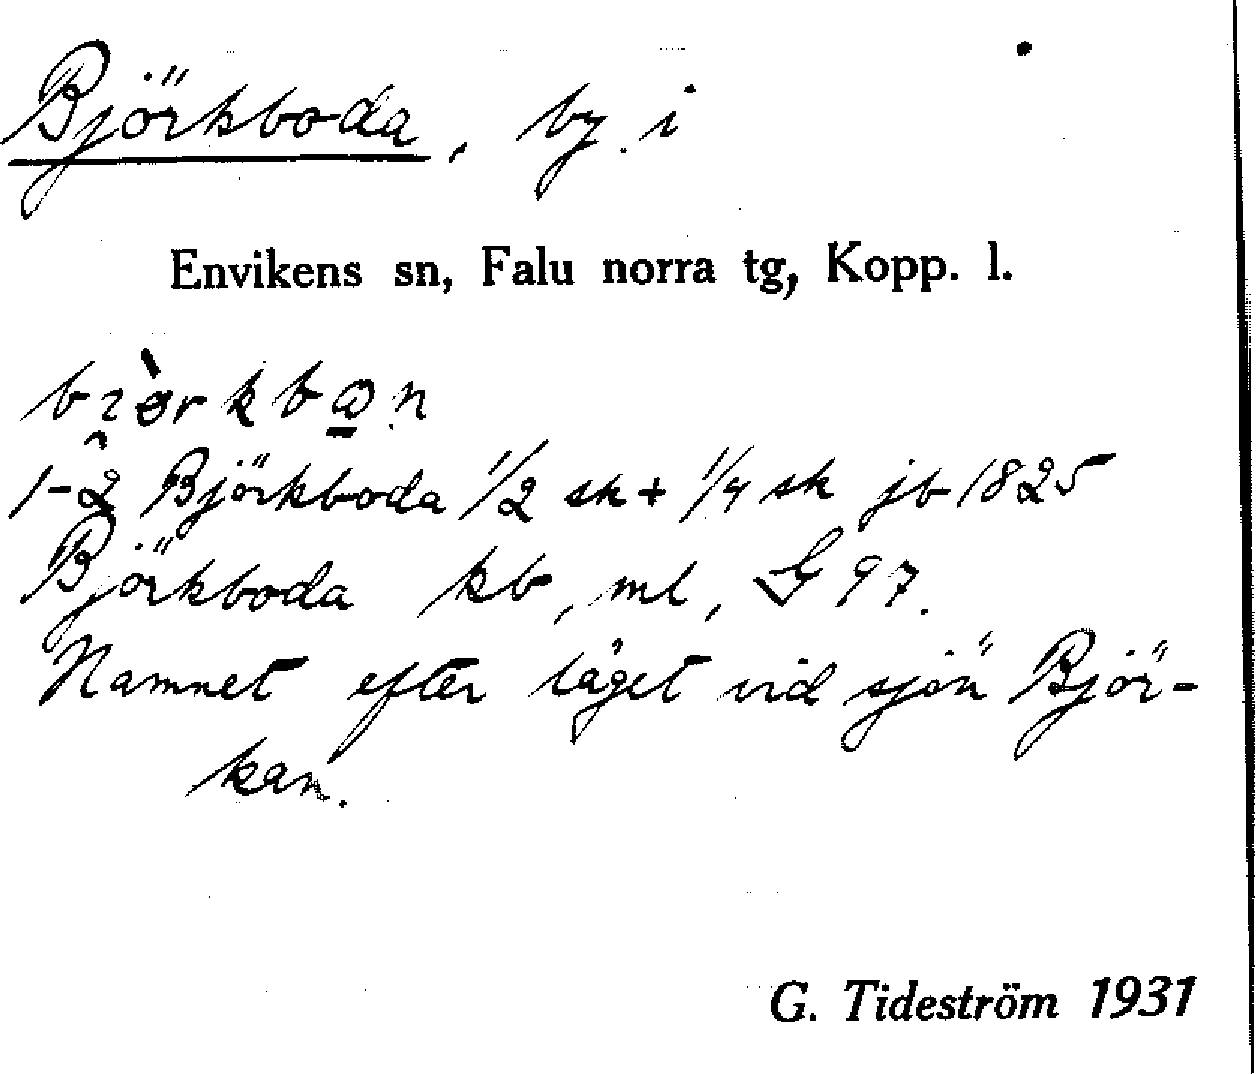 Björkboda, by i
Envikens sn, Falu norra tg, Kopp. l.
1-2 Björkboda 1/2 sk + 1/4 sk jb 1825
Björkboda kb, ml, G 97.
Namnet efter läget vid sjön Björ-
kan.
G. Tideström 1931